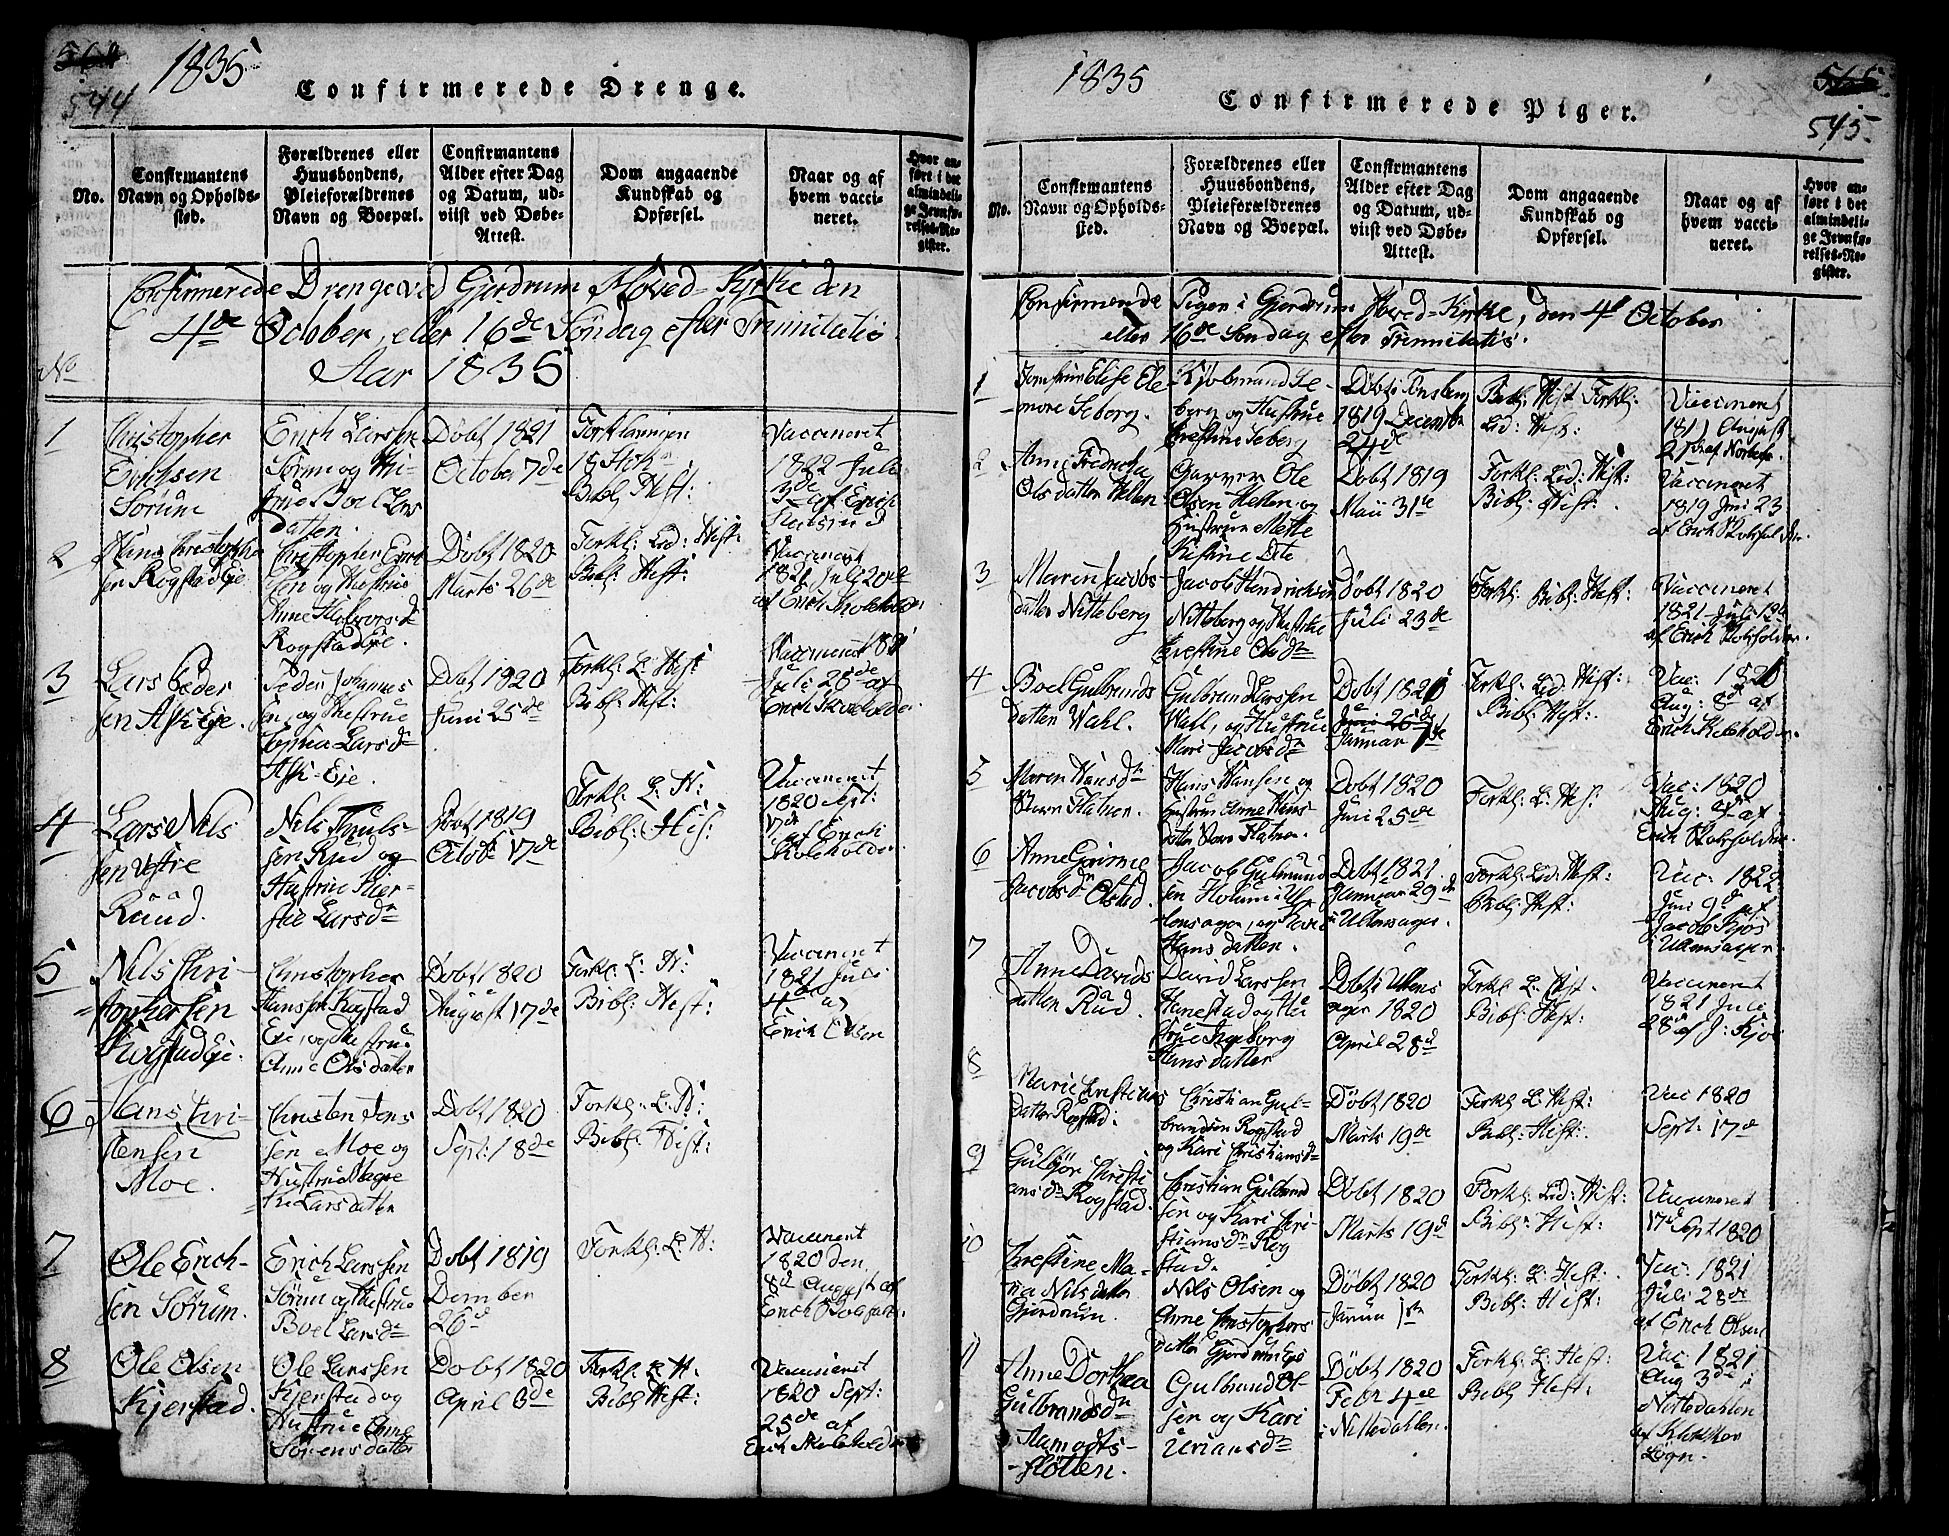 544
1835
Confirmerede Drenge.
No.
Confirmantens Navn og Opholds-sted.
Forældrenes eller Huusbondens, Pleieforældrenes Navn og Boepæl.
Confirmantens Alder efter Dag og Datum, ud-viist ved Døbe-Attest.
Dom angaaende Kundskab og Opførsel.
Naar og af hvem vacci-neret.
Hvor an-ført i det almindeli-ge Jevnfø-relses-Re-gister.
Confirmerede Drenge ved Gjerdrum Hoved-Kirke den
4de October, eller 16de Søndag efter Trinitatis
Aar 1835
No
1
Christopher
Erichsen
Sørum
Erich Larsen
Sørum og Hu-
strue Boel Lars
datter.
Døbt 1821
October 7de
Forklaringen
Bibl: Hist:
Vaccineret
1822 Juli
3de af Erich
2
Rogstad Eje
Christopher
sen og Hustrue
Anne Halvorsd
Rogstad Eje.
Døbt 1820
Marts 26de
Forkl: Lid: Hist:
Bibl: Hist:
Vaccineret
1821 Juli 20de
af Erich Skoleholder
3
Lars Peder
sen Ask Eje.
Peder Johannes
sen, og Hustrue
Larsdr
Ask-Eje.
Døbt 1820
Juni 25de
Forkl: L: Hist:
Bibl: Hist:
Vaccineret 1821
Juli 28de af
Erich Skoleholder
4
Lars Nils
sen Vestre
Ruud.
Nils
sen Ruud og
Hustrue
Larsdn
Døbt 1819
Octob: 17de
Forkl: L: H:
Bibl: His:
Vaccineret
1820 Sept:
17de
af Erich
Skoleholder
5
Nils Chri-
stophersen
Rogstad Eje.
Christopher
Hansen Rogstad
Eje, og Hustrue
Anne Olsdatter
Døbt 1820
August 17de
Forkl: L: H:
Bibl: Hist:
Vaccineret
1821 Juli
4de af
Erich Olsen
6
Hans Chri-
stensen
Moe.
Christen Jens
sen Moe og
Hustrue Magre
the Larsdatter
Døbt 1820
Sept: 18de
Forkl: L: H:
Bibl: Hist:
7
Ole Erich-
sen Sørum.
Erich Larssen
Sørum og Hustrue
Boel Larsdn
Døbt 1819
Dember
26d
Forkl: L: H:
Vaccinert
1820 den
8d August af
Erich
8
Ole Olsen
Kjerstad.
Ole Larssen
Kjerstad og
Hustrue Anne
Sørensdatter
Døbt 1820
April 3de
Forkl: L: H:
Bibl: Hist:
Vaccineret
1820 Sept:
25de af
Erich Skoleholder
1835
545.
Confirmerede Piger.
No.
Confirmantens Navn og Opholds-sted.
Forældrenes eller Huusbondens, Pleieforældrenes Navn og Boepæl.
Confirmantens Alder efter Dag og Datum, ud-viist ved Døbe-Attest.
Dom angaaende Kundskab og Opførsel.
Naar og af hvem vacci-neret.
Hvor an-ført i det almindeli-ge Jevnfø-relses-Re-gister.
Confirmerede Piger i Gjerdrum Hoved-Kirke, den 4d October
eller 16de Søndag efter Trinitatis.
1
Jomfrue Elise Ele
onore Seberg.
Kjøbmand Se-
berg og Hustrue
Christine Seberg
Døbt i Tønsberg
1819 December
24de
Bibl: Hist: Forkl:
Lid: Hist:
Vaccineret
2
Anne Fredricka
Olsdatter Hellen
Garver Ole
Olsen Hellen og
Hustrue Mette
Kirstine
Døbt 1819
Maii 31te
Forkl: Lid: Hist:
Bibl: Hist:
Vaccineret
1819 Juni 23
af Erich Skoleholder
3
Maren Jacobs
datter Nitteberg
Jacob Hendrichsen
Nitteberg og Hustrue
Christine Olsdn
Døbt 1820
Juli 23de
Forkl: Bibl: Hist:
Vaccineret
1821 Juli
af Erich Skoleholder.
4
Boel Gulbrands
datter Wahl.
Gulbrand Larssen
Wahl, og Hustrue
Mari Jacobsdn
Døbt 1821
Januar
Forkl: Lid Hist:
Bibl: Hist:
Vac: 1821
Aug: 8d af
Erich Skoleholder.
5
Maren Hansdn
Hans Hansen og
Hustrue Anne Hans
datter
Døbt 1820
Juni 25de
Forkl: L: His:
Vac: 1820
Aug: af
Erich Skoleholder
6
Anne Grimie
Jacobsdn Olstad.
Jacob Gulmund
sen Holum i Ul
lensager, og Kari
Hansdatter.
Døbt 1821
Januar 29d
i Ullensager.
Forkl: Lid: Hist:
Bibl: Hist:
Vac: 1822
Juni 9d af
Jacob Kjøs
i Ullensager
7
Anne Davids
datter Ruud.
David Larssen
Hanestad og Hu
strue Ingeborg
Hansdatter
Døbt i Ullens
ager 1820
April 28d
Forkl: L: Hist:
Bibl: Hist:
Vaccineret
1821 Juli
28d af J: Kjøs
8
Marie Christians
datter Rogstad:
Christian Gul-
brandsen Rogstad
og Kari Christiansdn
Døbt 1820
Marts 19de
Forkl: L: Hist:
Bibl: Hist:
Vac 1820
Sept: 17de
9
Gulbjør Christi
ansdn Rogstad.
Christian Gulbrand
sen og Kari Chri-
stiansdn Rog
stad.
Døbt 1820
Marts 19d
Forkl: Lid: Hist:
Bibl: Hist:
Vaccineret
17d Sept 1820
10
Christine Ma-
ria Nilsdatter
Gjerdrum
Nils Olsen og
Anne Christophers
datter Gjerdrum Eje
Døbt 1820
Januar 1ste
Forkl: L: Hist:
Bibl: Hist:
Vac: 1821
Juli 28de
af Erich Olsen
11
Anne Dorthea
Gulbrandsdn
Aamodts-
sløtten.
Gulbrand Ol-
sen og Kari
Uriansdn
Døbt 1820
Febr 4de
i Nittedahlen.
Forkl: L: Hist:
Bibl: Hist:
Vac: 1821
Aug 3de i
Nittedahlen
af Klokker
Løgn.